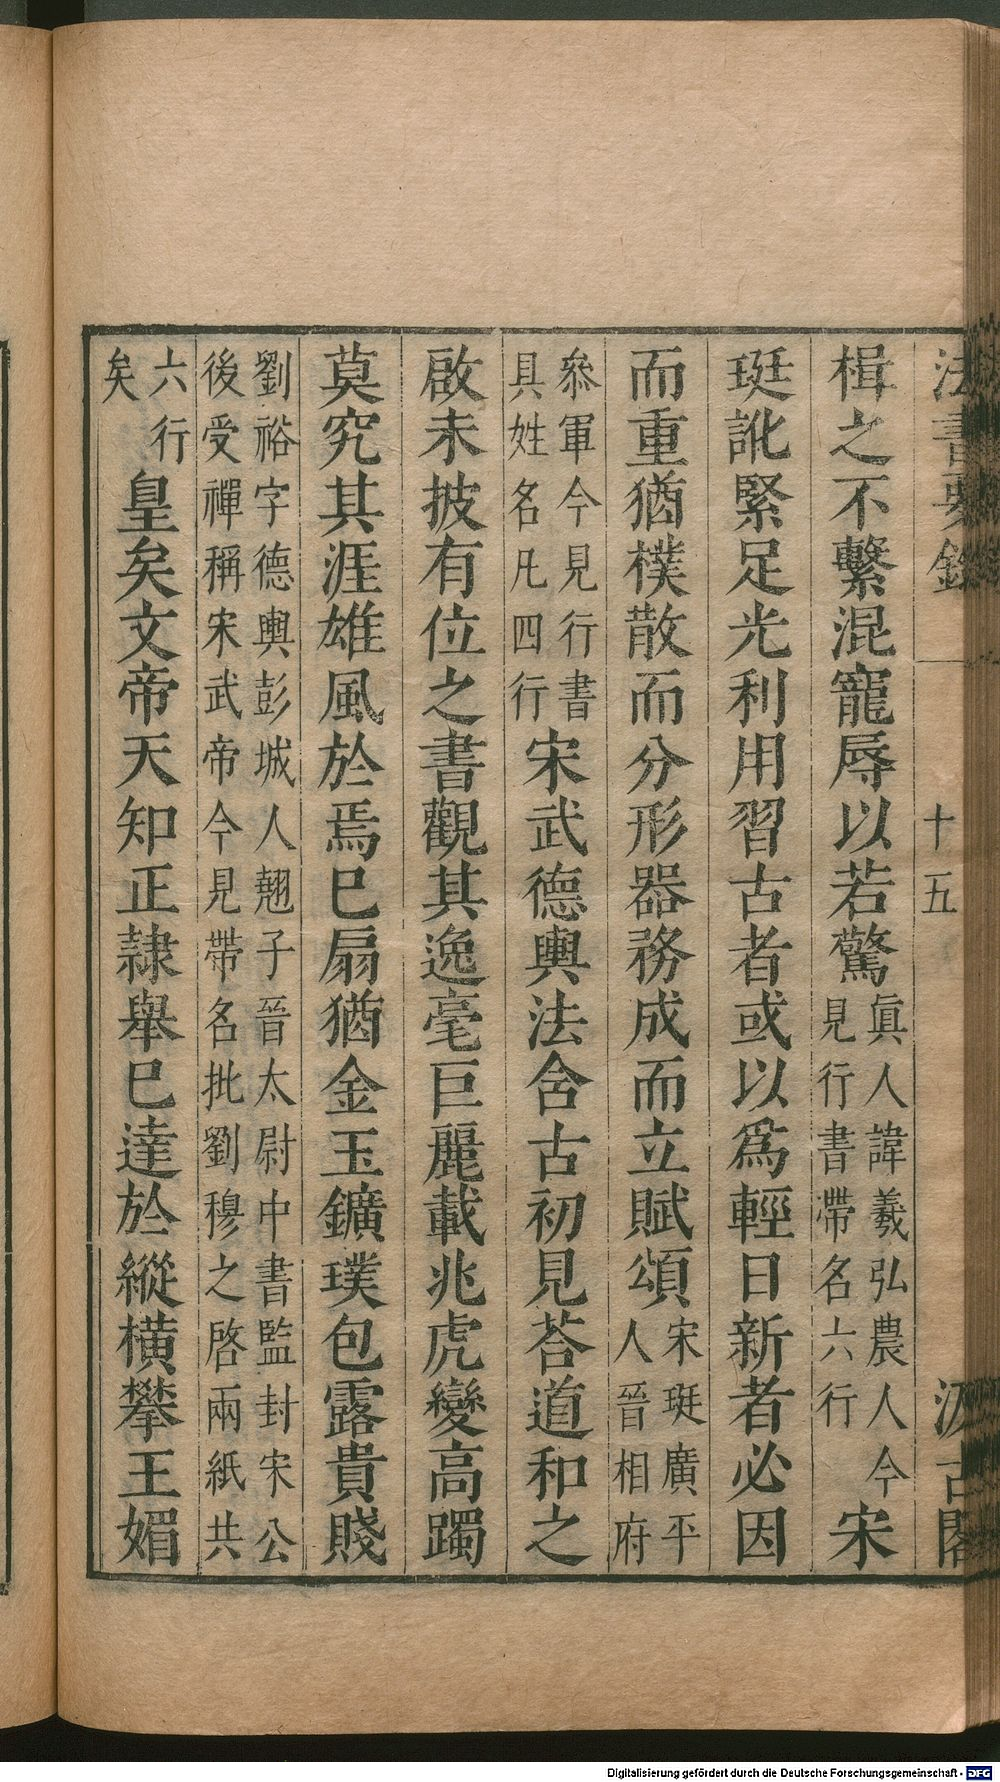 法書要錄 十五 汲古閣
楫之不繫混寵辱以若驚眞人諱羲弘農人今見行書帶名六行宋
珽訛緊足光利用習古者或以爲輕日新者必因
而重猶樸散而分形器務成而立賦頌宋珽廣平人晉相府
叅軍今見行書具姓名凡四行宋武德輿法含古初見荅道和之
啟未披有位之書觀其逸毫巨麗載兆虎變高躅
莫究其涯雄風於焉已扇猶金玉鑛璞包露貴賤
劉裕字德輿彭城人翹子晉太尉中書監封宋公後受禪稱宋武帝今見帶名批劉穆之啓兩紙共
六行矣皇矣文帝天知正隷舉已達於縱橫攀王媚
Digitalisierung gefördert durch die Deutsche Forschungsgemeinschaft - DFG